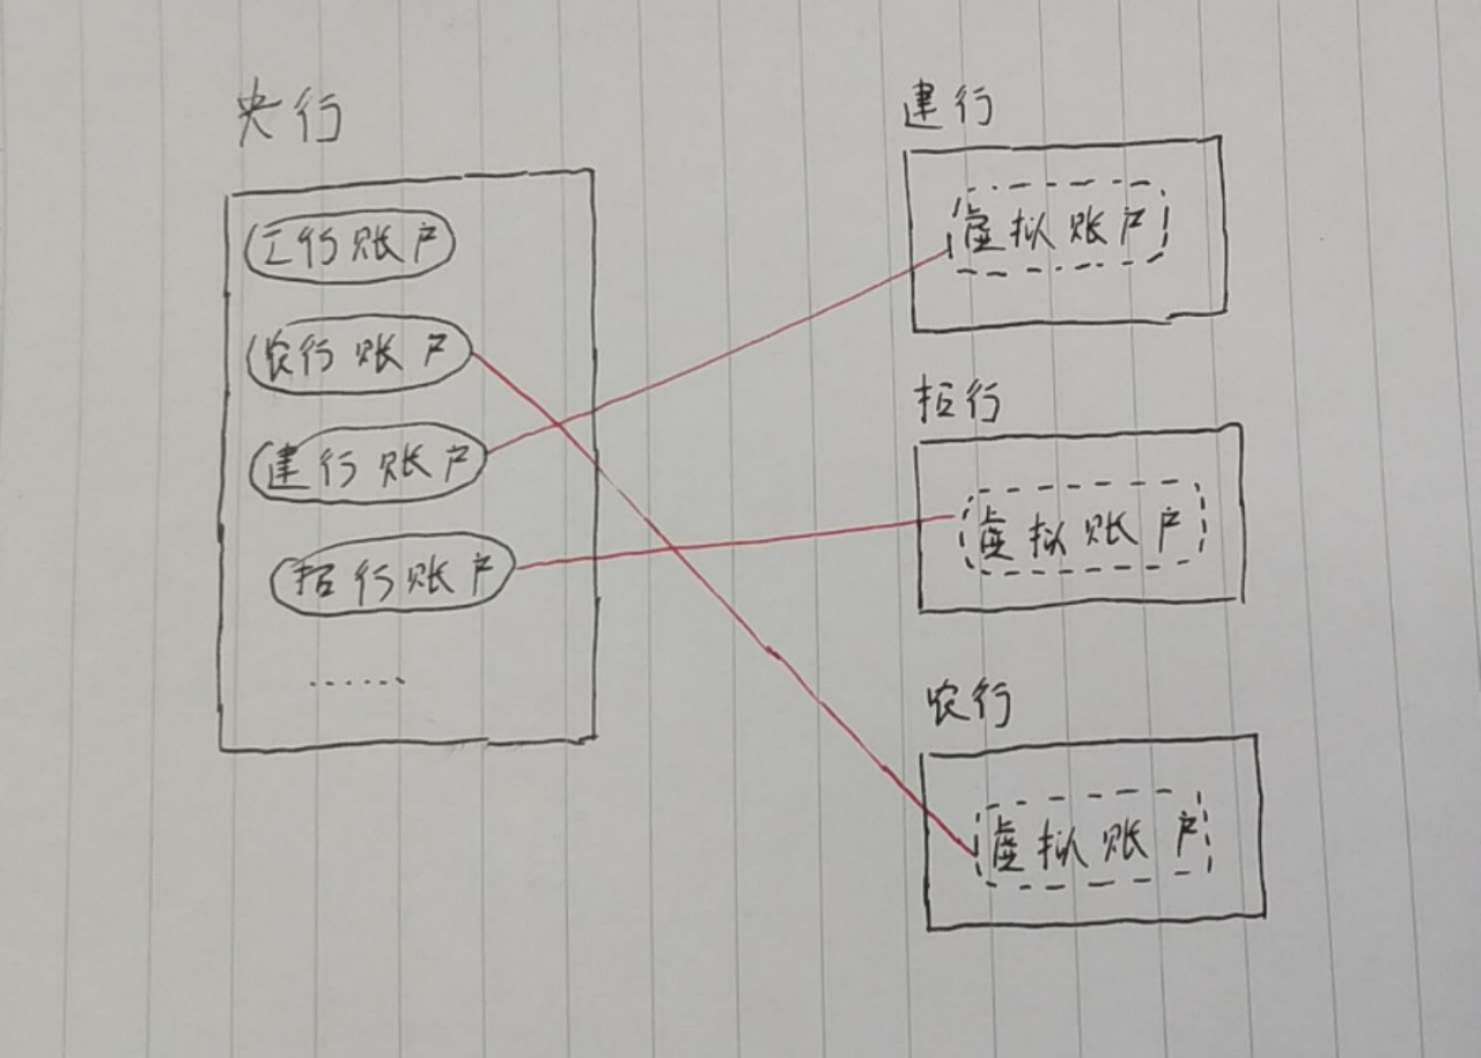 央行
工行账户
农行账户
建行账户
招行账户
......
建行
虚拟账户
招行
虚拟账户
农行
虚拟账户